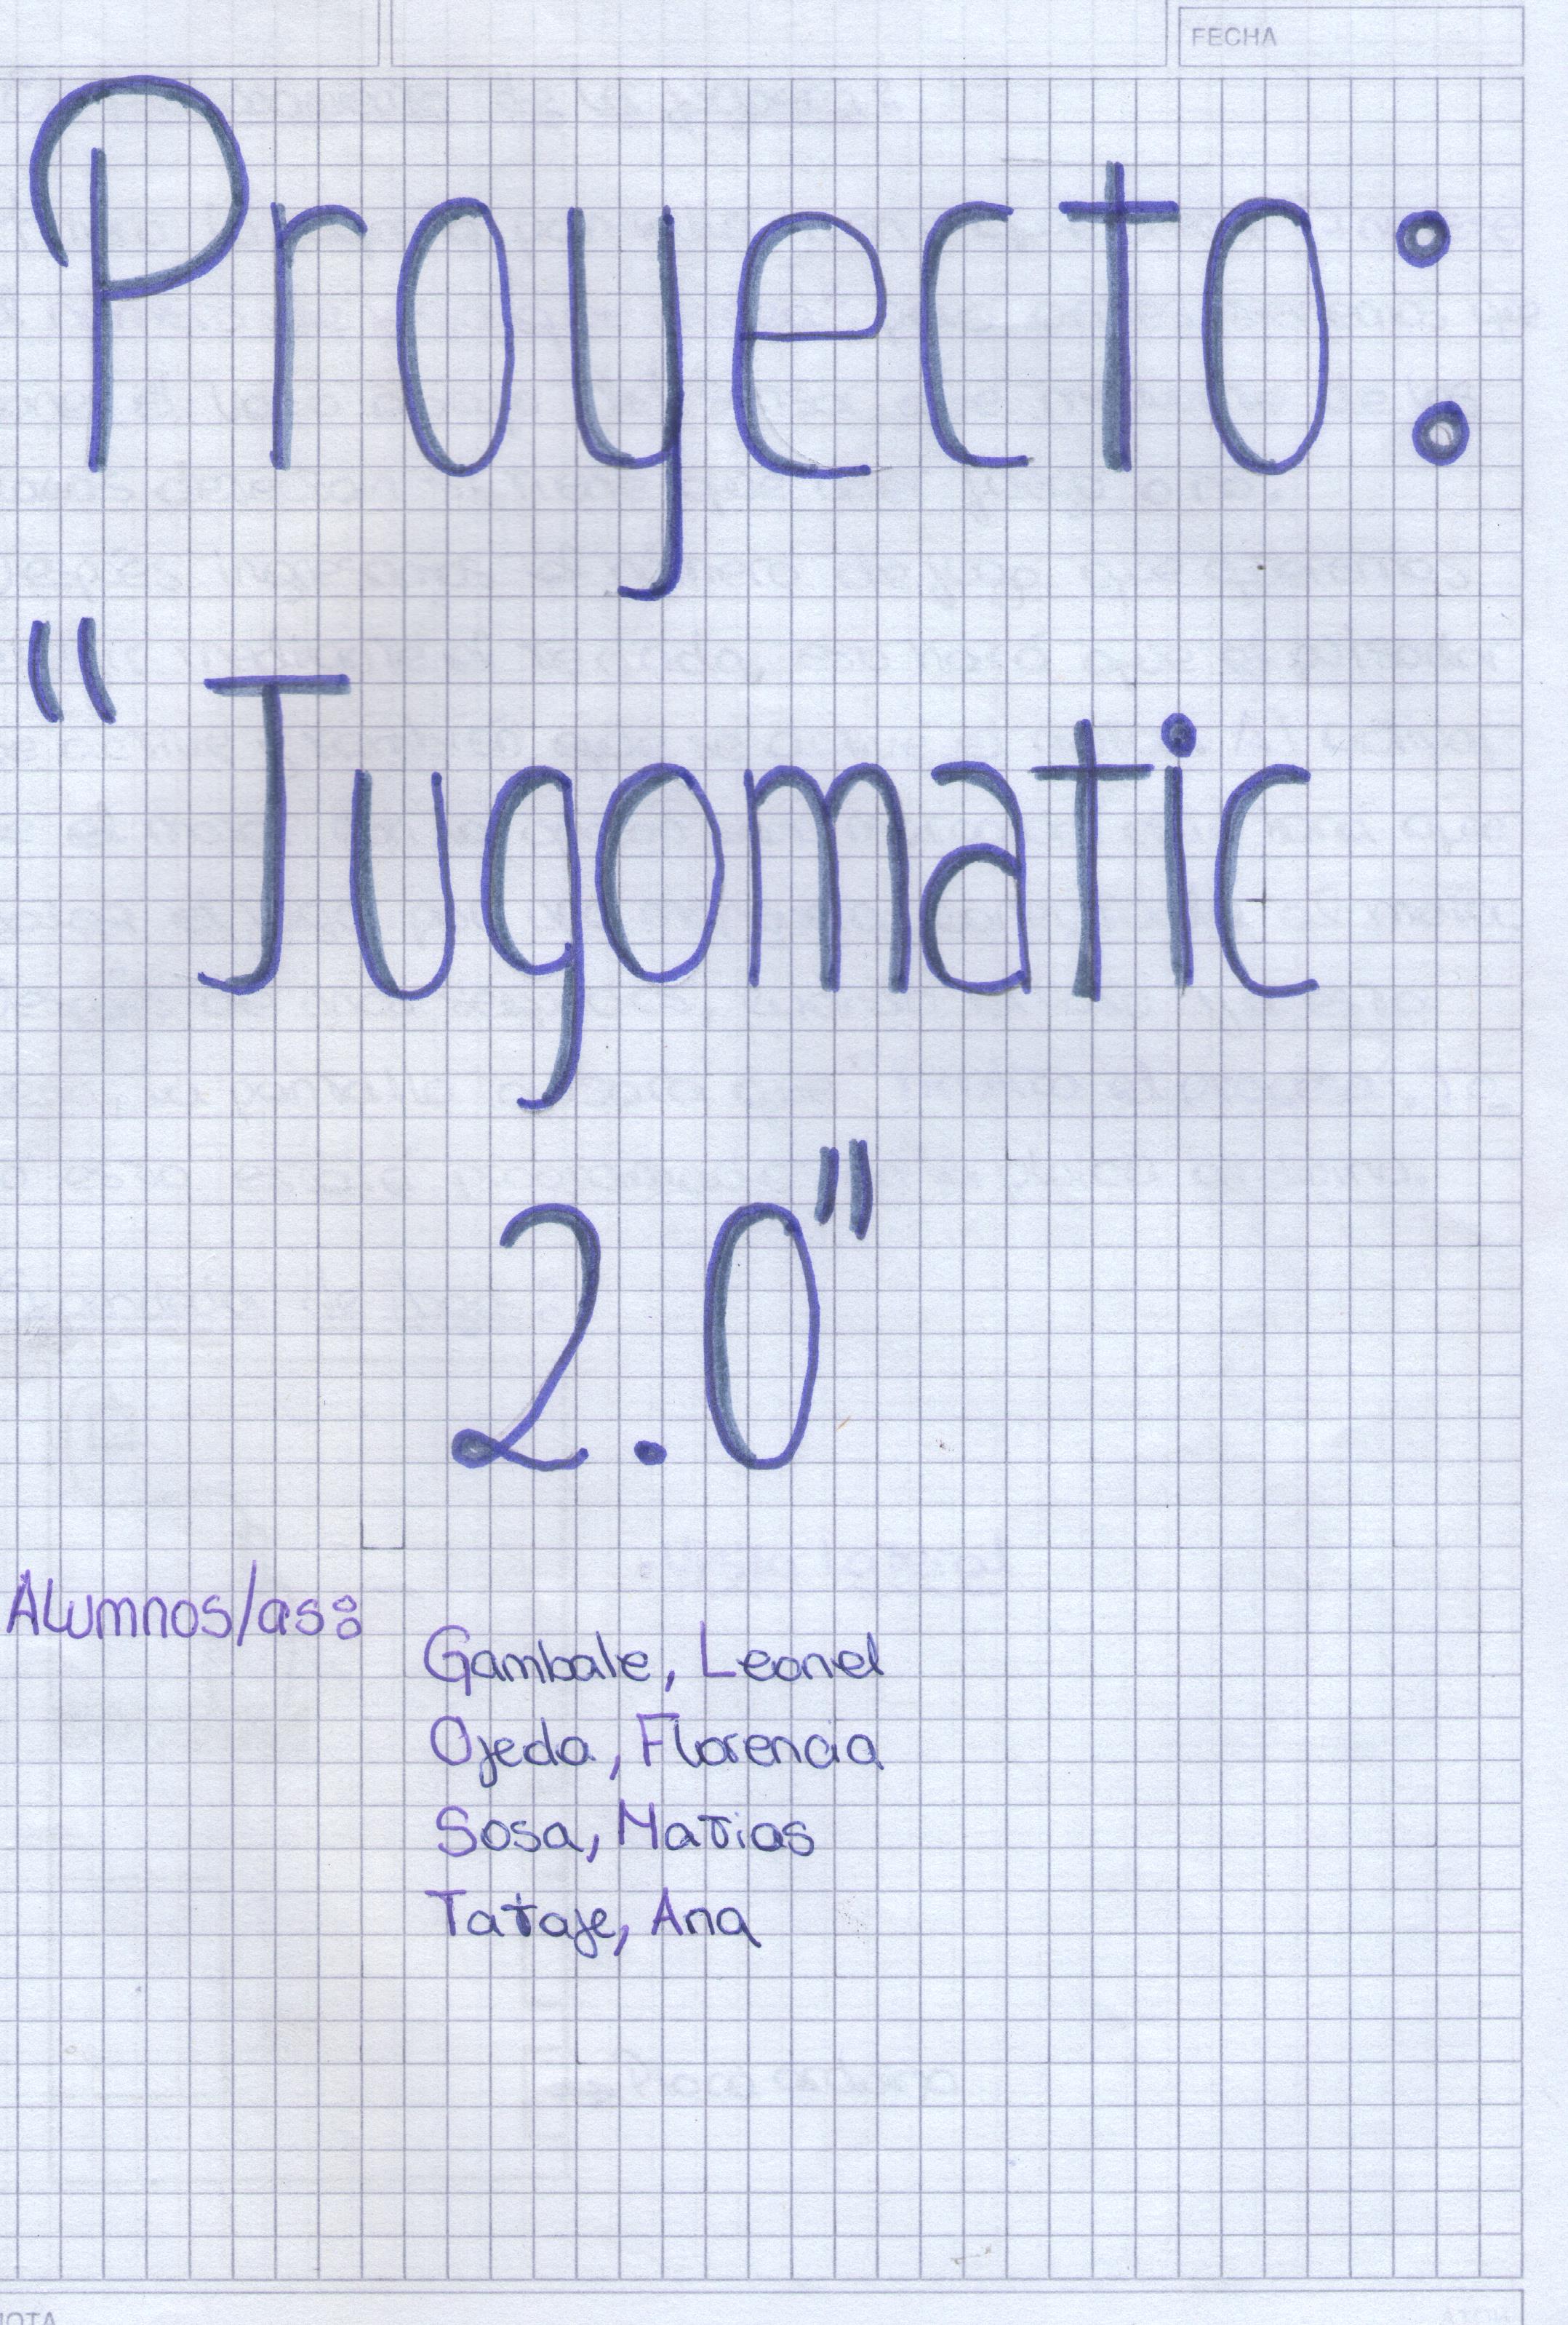 FECHA
Proyecto:
"Jugomatic
2.0"
Alumnos/as:
Gambale, Leonel
Ojeda, Florencia
Sosa, Matias
Tataje, Ana
NOTA